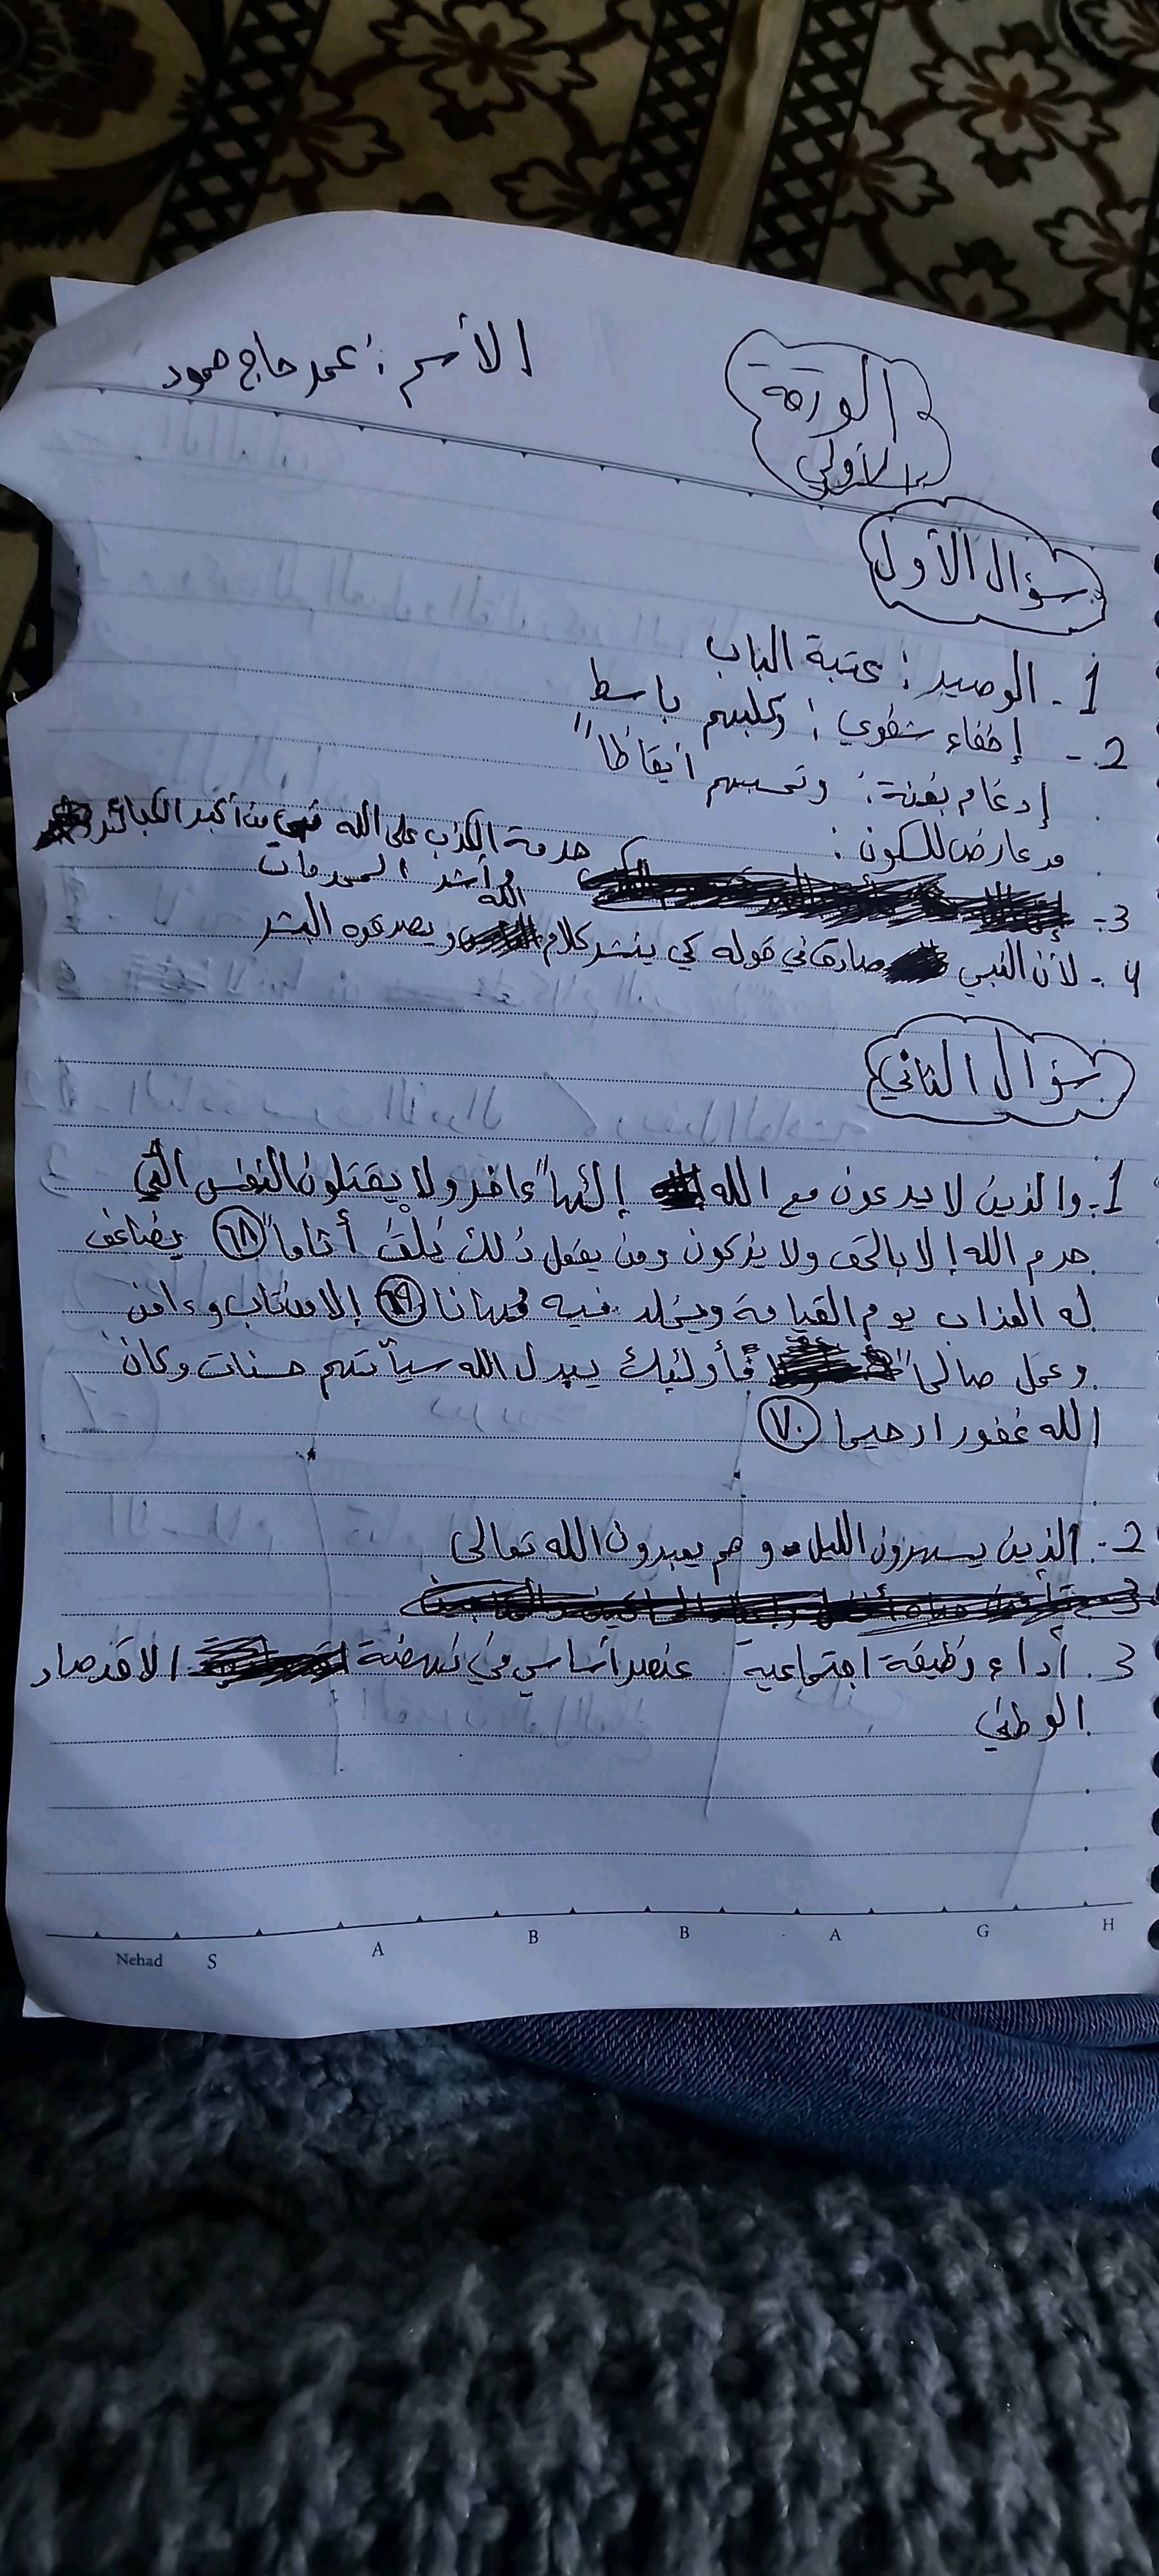 الأسم : عمر حاج حمود
الورقة
الأولى
سؤال الأول
1 - الوصيد : عتبة الباب
2 - إخفاء شفوي : وكلبهم باسط
إدغام بغنة : وتحسبهم أيقاظا"
مد عارض للسكون :
3 - حرمة الكذب على الله من أكبر الكبائر
وأشد المحرمات
4 - لأن النبي صادق في قوله كي ينشر كلام الله ويصدقوه البشر
سؤال الثاني
1 - والذين لا يدعون مع الله إلها" ءاخر ولا يقتلون النفس التي
حرم الله إلا بالحق ولا يزنون ومن يفعل ذلك يلق أثاما" ٦٨ يضاعف
له العذاب يوم القيامة ويخلد فيه مهانا ٦٩ إلا من تاب وءامن
وعمل صالحا" فأولئك يبدل الله سيأتهم حسنات وكان
الله غفورا رحيما ٧٠
2 - الذين يسهرون الليل و هم يعبدون الله تعالى
3 . أداء وظيفة اجتماعية عنصر أساسي في نهضة الاقتصاد
الوطني
Nehad S A B B A G H